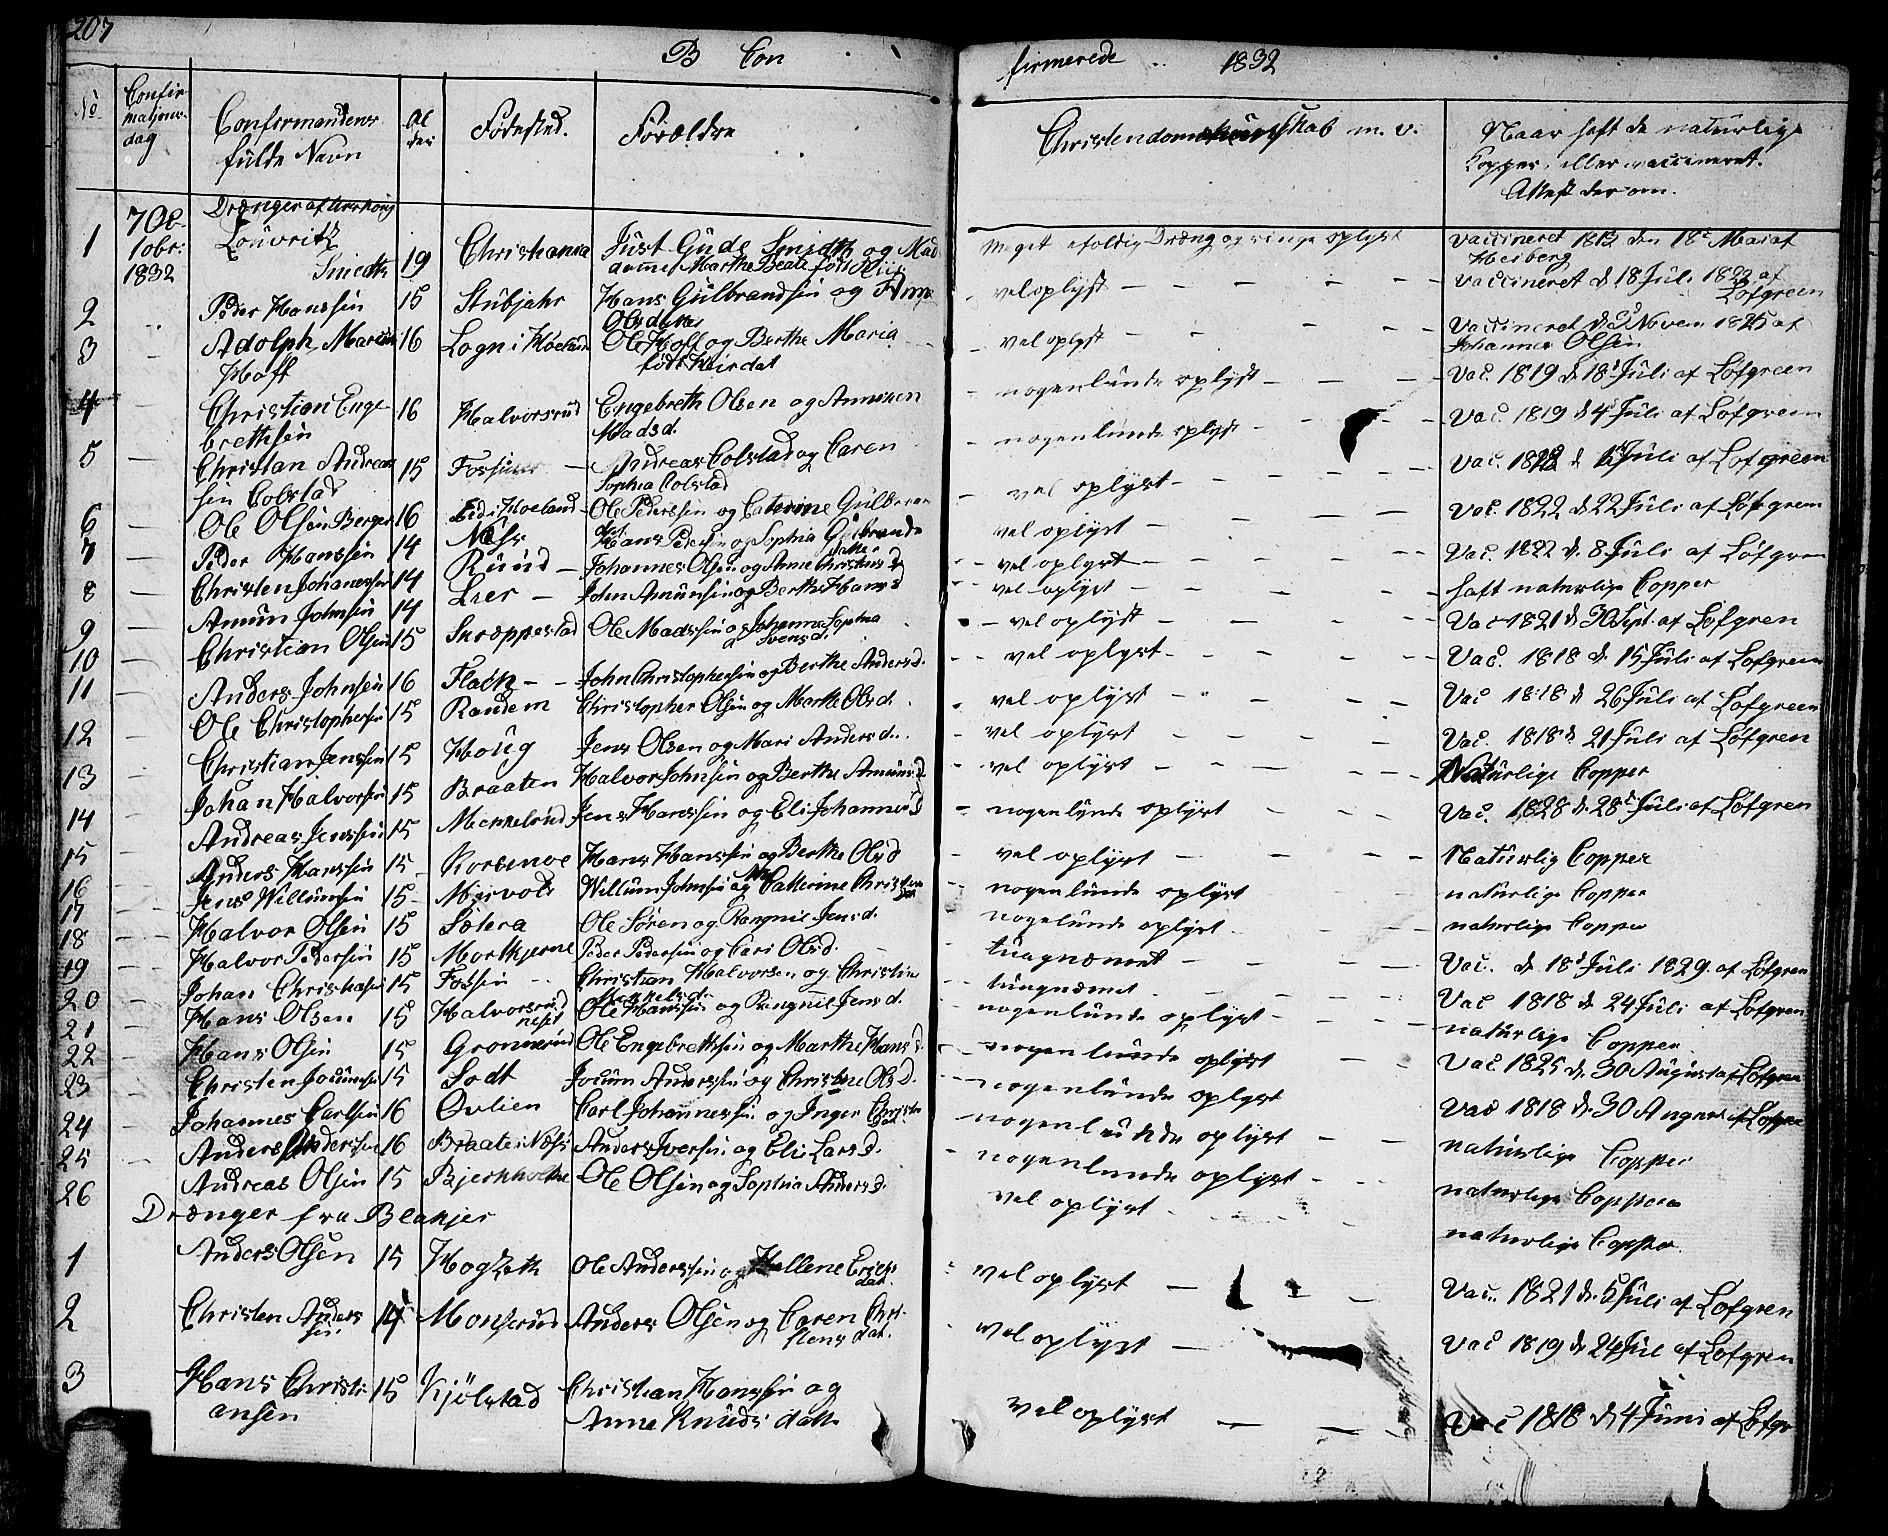 207
B Con
firmerede 1832
No
Confir-
mations-
dag
Confirmandens
fulde Navn
Al
der
Fødested.
Forældre
Christendomskundskab m. v.
Naar haft de naturlige
Kopper, eller vaccineret.
Attest derom.
Drænger af Urskoug
1 7 Oc-
tobr: 1832 Louvritz Smedth 19 Christiania Just Gude Smedth og Mad
dame Marthe Beate født
meget efoldig Dræng og ringe oplyst
Vaccineret 1813 den 18de Mai af
Heiberg
2 Peder Hanssen 15 Stubjahr Hans Gulbrandsen og Anne
Olsdatter
vel oplyst
vaccineret d 18 Juli 1822 af
Løfgreen
3 Adolph Marius
Hoff 16 Logn i Høeland Ole Hoff og Berthe Maria
født Heirdal
vel oplyst
Vaccineret d. 5 Novem 1825 af
Johannes Olsen
4 Christian Enge-
brethsen 16 Halvorsrud Engebreth Olsen og Anniken
Madsd.
nogenlunde oplyst
Vac. 1819 d 18d Juli af Løfgreen
5 Christian Andreas
sen Colstad 15 Fossum Andreas Colstad og Caren
Sophia Colstad
nogenlunde oplyst
Vac. 1819 d 4 Juli af Løfgreen
6 Ole Olsen Berger 16 Eid i Høeland Ole Pedersen og Catrine Gulbran
dat
vel oplyst
Vac. 1818 d Juli af Løfgreen
7 Peder Hanssen 14 Næss Hans Pedersen og Sophia Gulbrands
datter
vel oplyst
Vac. 1822 d 22 Juli af Løfgreen
8 Christen Johanessen 14 Ruud Johannes Olsen og Anne Christensd
vel oplyst
Vac. 1822 d. 8 Juli af Løfgren
9 Amun Johnsen 14 Lier John Amunsen og Berthe Hansd
vel oplyst
haft naturlige Copper
10 Christian Olsen 15 Snæppestad Ole Madssen og Johanne Sophia
Svensd.
vel oplyst
Vac 1821 d 30 Sept. af Løfgren
11 Anders Johnsen 16 Flaön John Christophersen og Berthe Andersd.
vel oplyst
Vac. 1818 d. 15 Juli af Løfgreen
12 Ole Christophersen 15 Randem Christopher Olsen og Marthe Olsd.
vel oplyst
Vac 1818 d 26 Juli af Løfgreen
13 Christian Jenssen 15 Houg Jens Olsen og Mari Andersd.
vel oplyst
Vac. 1818 d. 21 Juli af Løfgren
14 Johan Halvorsen 15 Braaten Halvor Johnsen og Berthe Amunsd
vel oplyst
Naturlige Copper
15 Andreas Jenssen 15 Mekkelrud Jens Hanssen og Eli Johannesd
nogenlunde oplyst
Vac. 1828 d. 28de Juli af Løfgren
16 Anders Hanssen 15 Korsmoe Hans Hanssen og Berthe Olsd
vel oplyst
Naturlig Copper
17 Jens Willumsen 15 Mjervold Willum Johnsen og Catterine Christen
nogenlunde oplyst
naturlige Copper
18 Halvor Olsen 15 Søtera Ole Søren og Rangnil Jensd.
nogelunde oplyst
naturlige Copper
19 Halvor Pedersen 15 Morthjerne Peder Pedersen og Cari Olsd.
tungnæmet
Vac. d 18d Juli 1829 af Løfgren
20 Johan Christiansen 15 Fossen Christian Halvorsen og Christine
Mekkelsd.
tungnæmet
Vac 1818 d 24 Juli af Løfgren
21 Hans Olsen 15 Halvorsrud
neset Ole Hanssen og Rangnil Jensd.
nogenlunde oplyst
naturlige Copper
22 Hans Olsen 15 Gronnerud Ole Engebrethsen og Marthe Hansd.
nogenlunde oplyst
Vac 1825 d 30 August af Løfgren
23 Christen Jocumsen 15 Sodt Jocum Anderssen og Christine Olsd.
nogenlunde oplyst
Vac 1818 d. 30 August af Løfgren
24 Johannes Carlsen 16 Ovlien Carl Johannessen og Inger Christe
dat.
nogenlunde oplyst
naturlige Copper
25 Anders Anderssen 16 Braaten Næss Anders Iversen og Eli Larsd.
nogenlunde oplyst
naturlige Copper
26 Andreas Olsen 15 Bjerkholthe Ole Olsen og Sophia Andersd.
vel oplyst
naturlige Copper
Drænger fra Blakjer
1 Anders Olsen 15 Hogseth Ole Anderssen og Hellene Erichs
dat.
vel oplyst
Vac. 1821 d. 6 Juli af Løfgren
2 Christen Anders
sen 14 Monserud Anders Olsen og Caren Chri-
stensdat.
vel oplyst
Vac 1819 d. 24 Jul af Løfgren
3 Hans Christi
ansen 15 Kjölstad Christian Hanssen og
Anne Knudsdatter
vel oplyst
Vac 1818 d 4 Juni af Løfgr